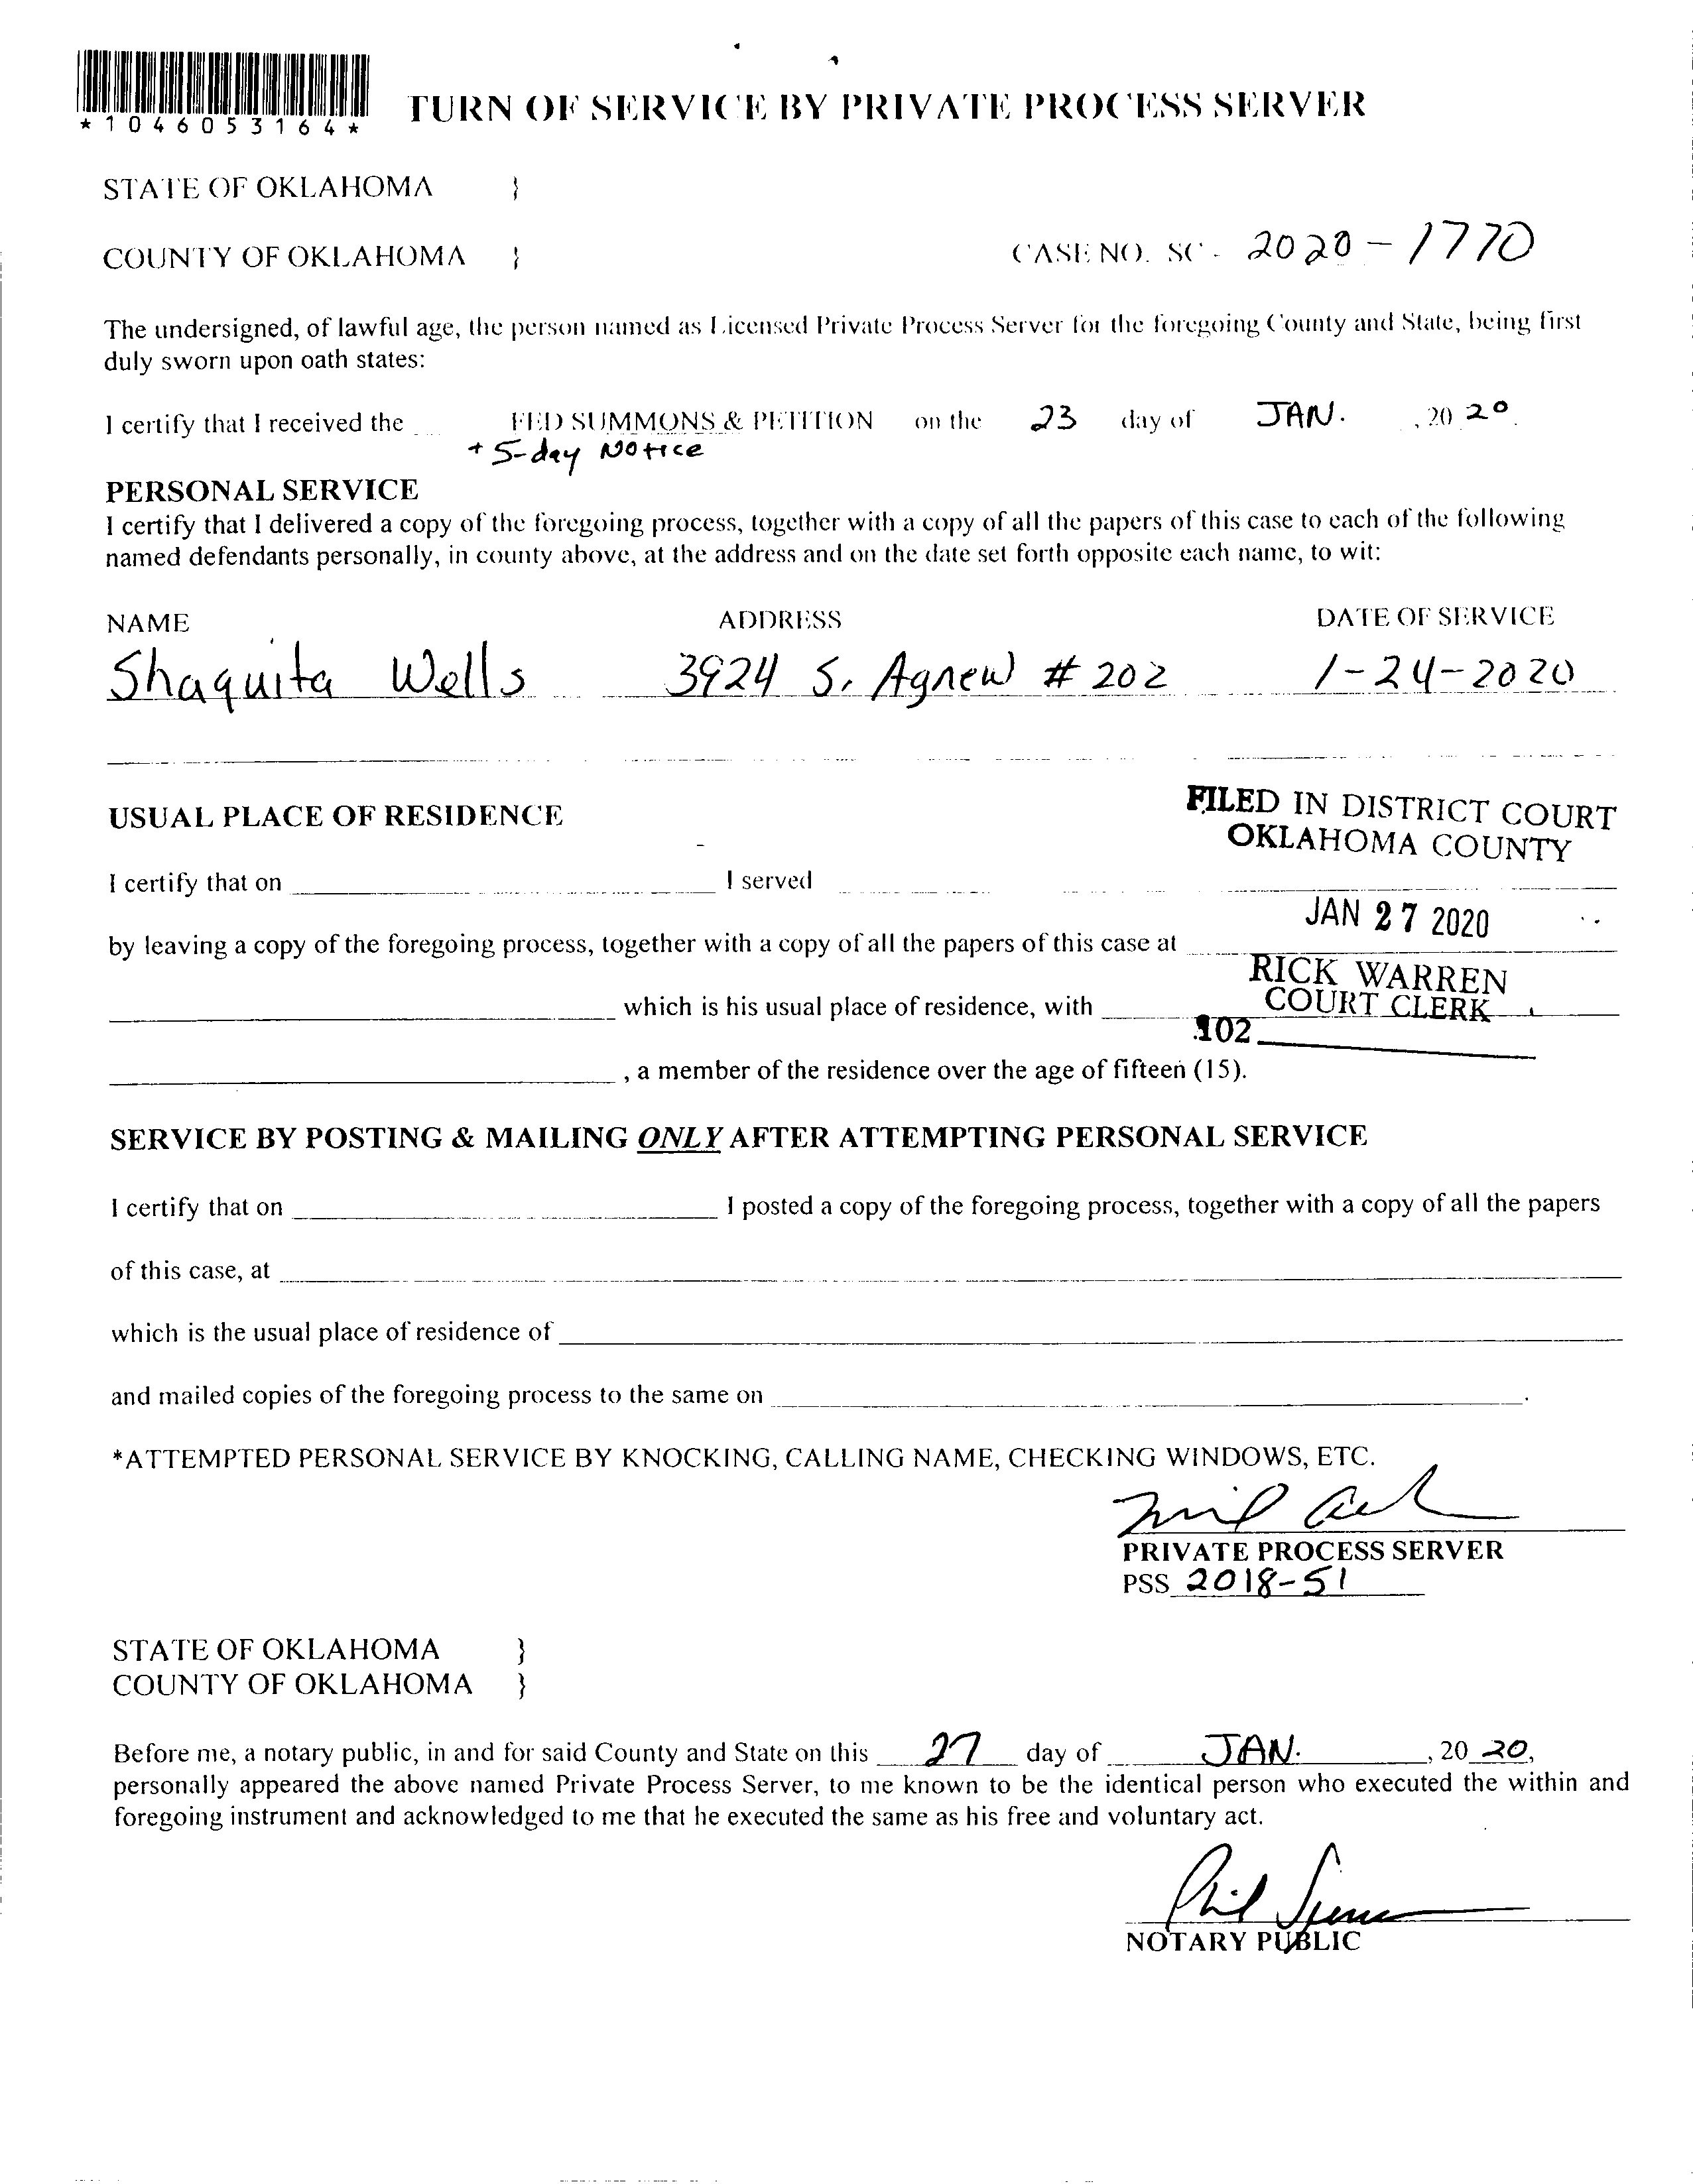 *1046053164*
TURN OF SERVICE BY PRIVATE PROCESS SERVER
STATE OF OKLAHOMA }
COUNTY OF OKLAHOMA } CASE NO. SC - 2020-1770
The undersigned, of lawful age, the person named as Licensed Private Process Server for the foregoing County and State, being first
duly sworn upon oath states:
I certify that I received the FED SUMMONS & PETITION on the 23 day of JAN. , 20 20.
+ 5-day Notice
PERSONAL SERVICE
I certify that I delivered a copy of the foregoing process, together with a copy of all the papers of this case to each of the following
named defendants personally, in county above, at the address and on the date set forth opposite each name, to wit:
NAME ADDRESS DATE OF SERVICE
Shaquita Wells 3924 S. Agnew # 202 1-24-2020
FILED IN DISTRICT COURT
OKLAHOMA COUNTY
USUAL PLACE OF RESIDENCE
I certify that on I served
JAN 27 2020
by leaving a copy of the foregoing process, together with a copy of all the papers of this case at
RICK WARREN
COURT CLERK
which is his usual place of residence, with
102
, a member of the residence over the age of fifteen (15).
SERVICE BY POSTING & MAILING ONLY AFTER ATTEMPTING PERSONAL SERVICE
I certify that on I posted a copy of the foregoing process, together with a copy of all the papers
of this case, at
which is the usual place of residence of
and mailed copies of the foregoing process to the same on .
*ATTEMPTED PERSONAL SERVICE BY KNOCKING, CALLING NAME, CHECKING WINDOWS, ETC.
PRIVATE PROCESS SERVER
PSS 2018-51
STATE OF OKLAHOMA }
COUNTY OF OKLAHOMA }
Before me, a notary public, in and for said County and State on this 27 day of JAN. , 20 20,
personally appeared the above named Private Process Server, to me known to be the identical person who executed the within and
foregoing instrument and acknowledged to me that he executed the same as his free and voluntary act.
Phil
NOTARY PUBLIC